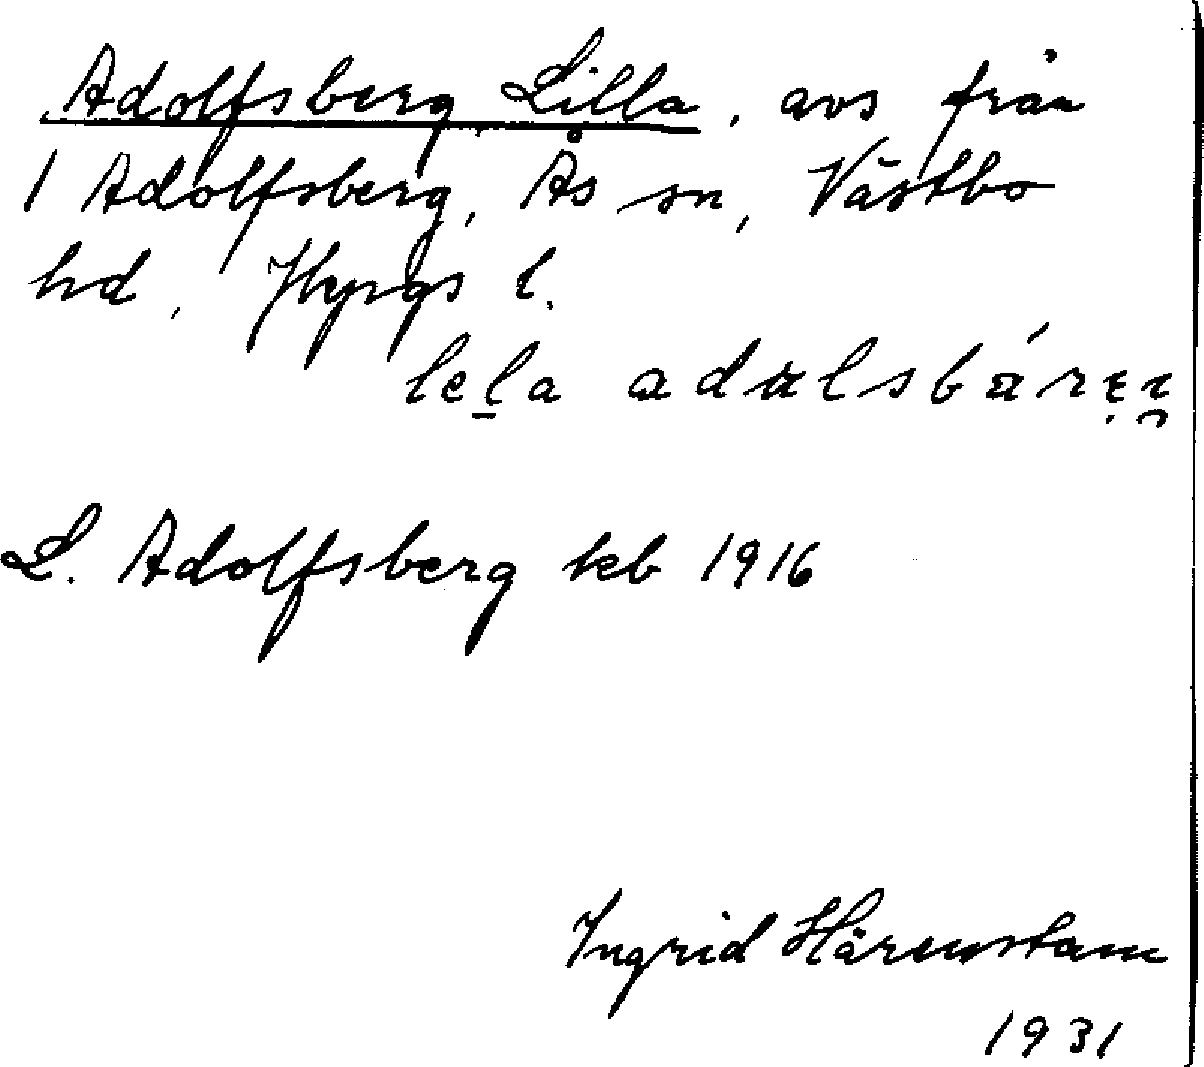 Adolfsberg Lilla, avs från
1 Adolfsberg, Ås sn, Västbo
hd, Jkpgs l.
lela adalsbárɛɪ
L. Adolfsberg kb 1916
Ingrid Härenstam
1931